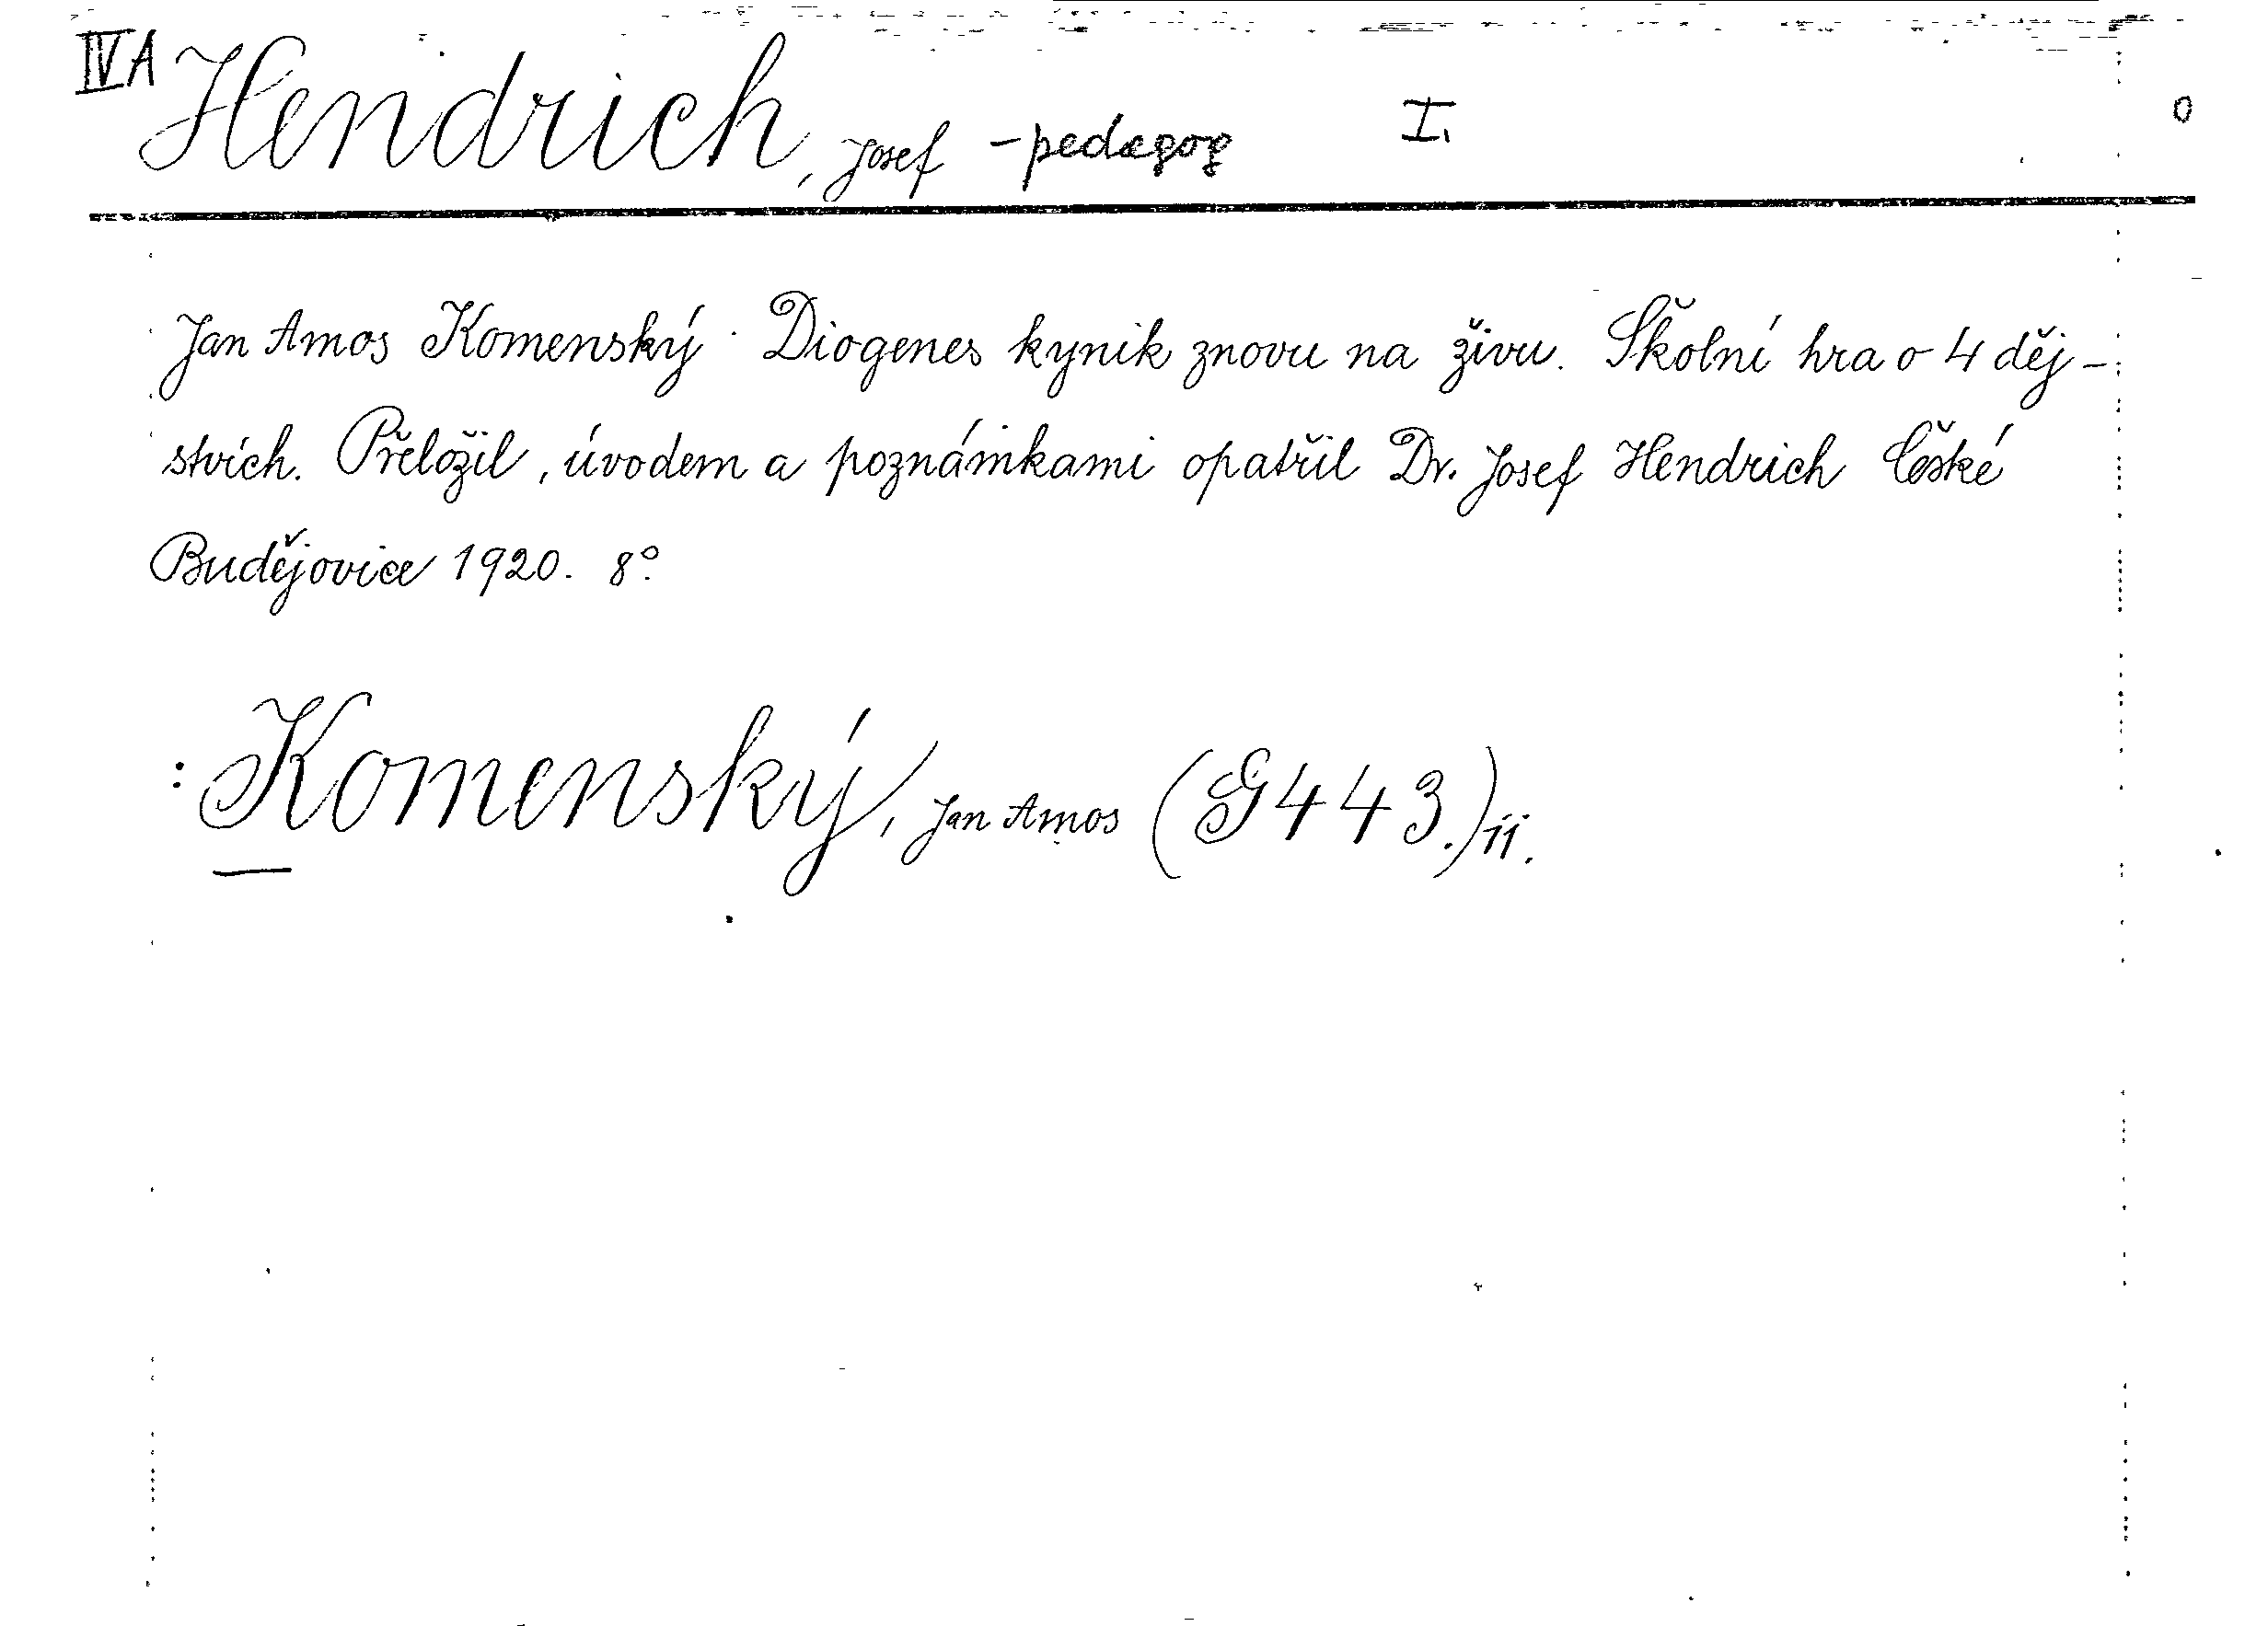 IVA Hendrich, Josef - pedagog I. 0
Jan Amos Komenský. Diogenes kynik znovu na živu. Školní hra o 4 děj-
stvích. Přeložil, úvodem a poznámkami opatřil Dr. Josef Hendrich České
Budějovice 1920. 8°.
: Komenský, Jan Amos (G443.) ii.